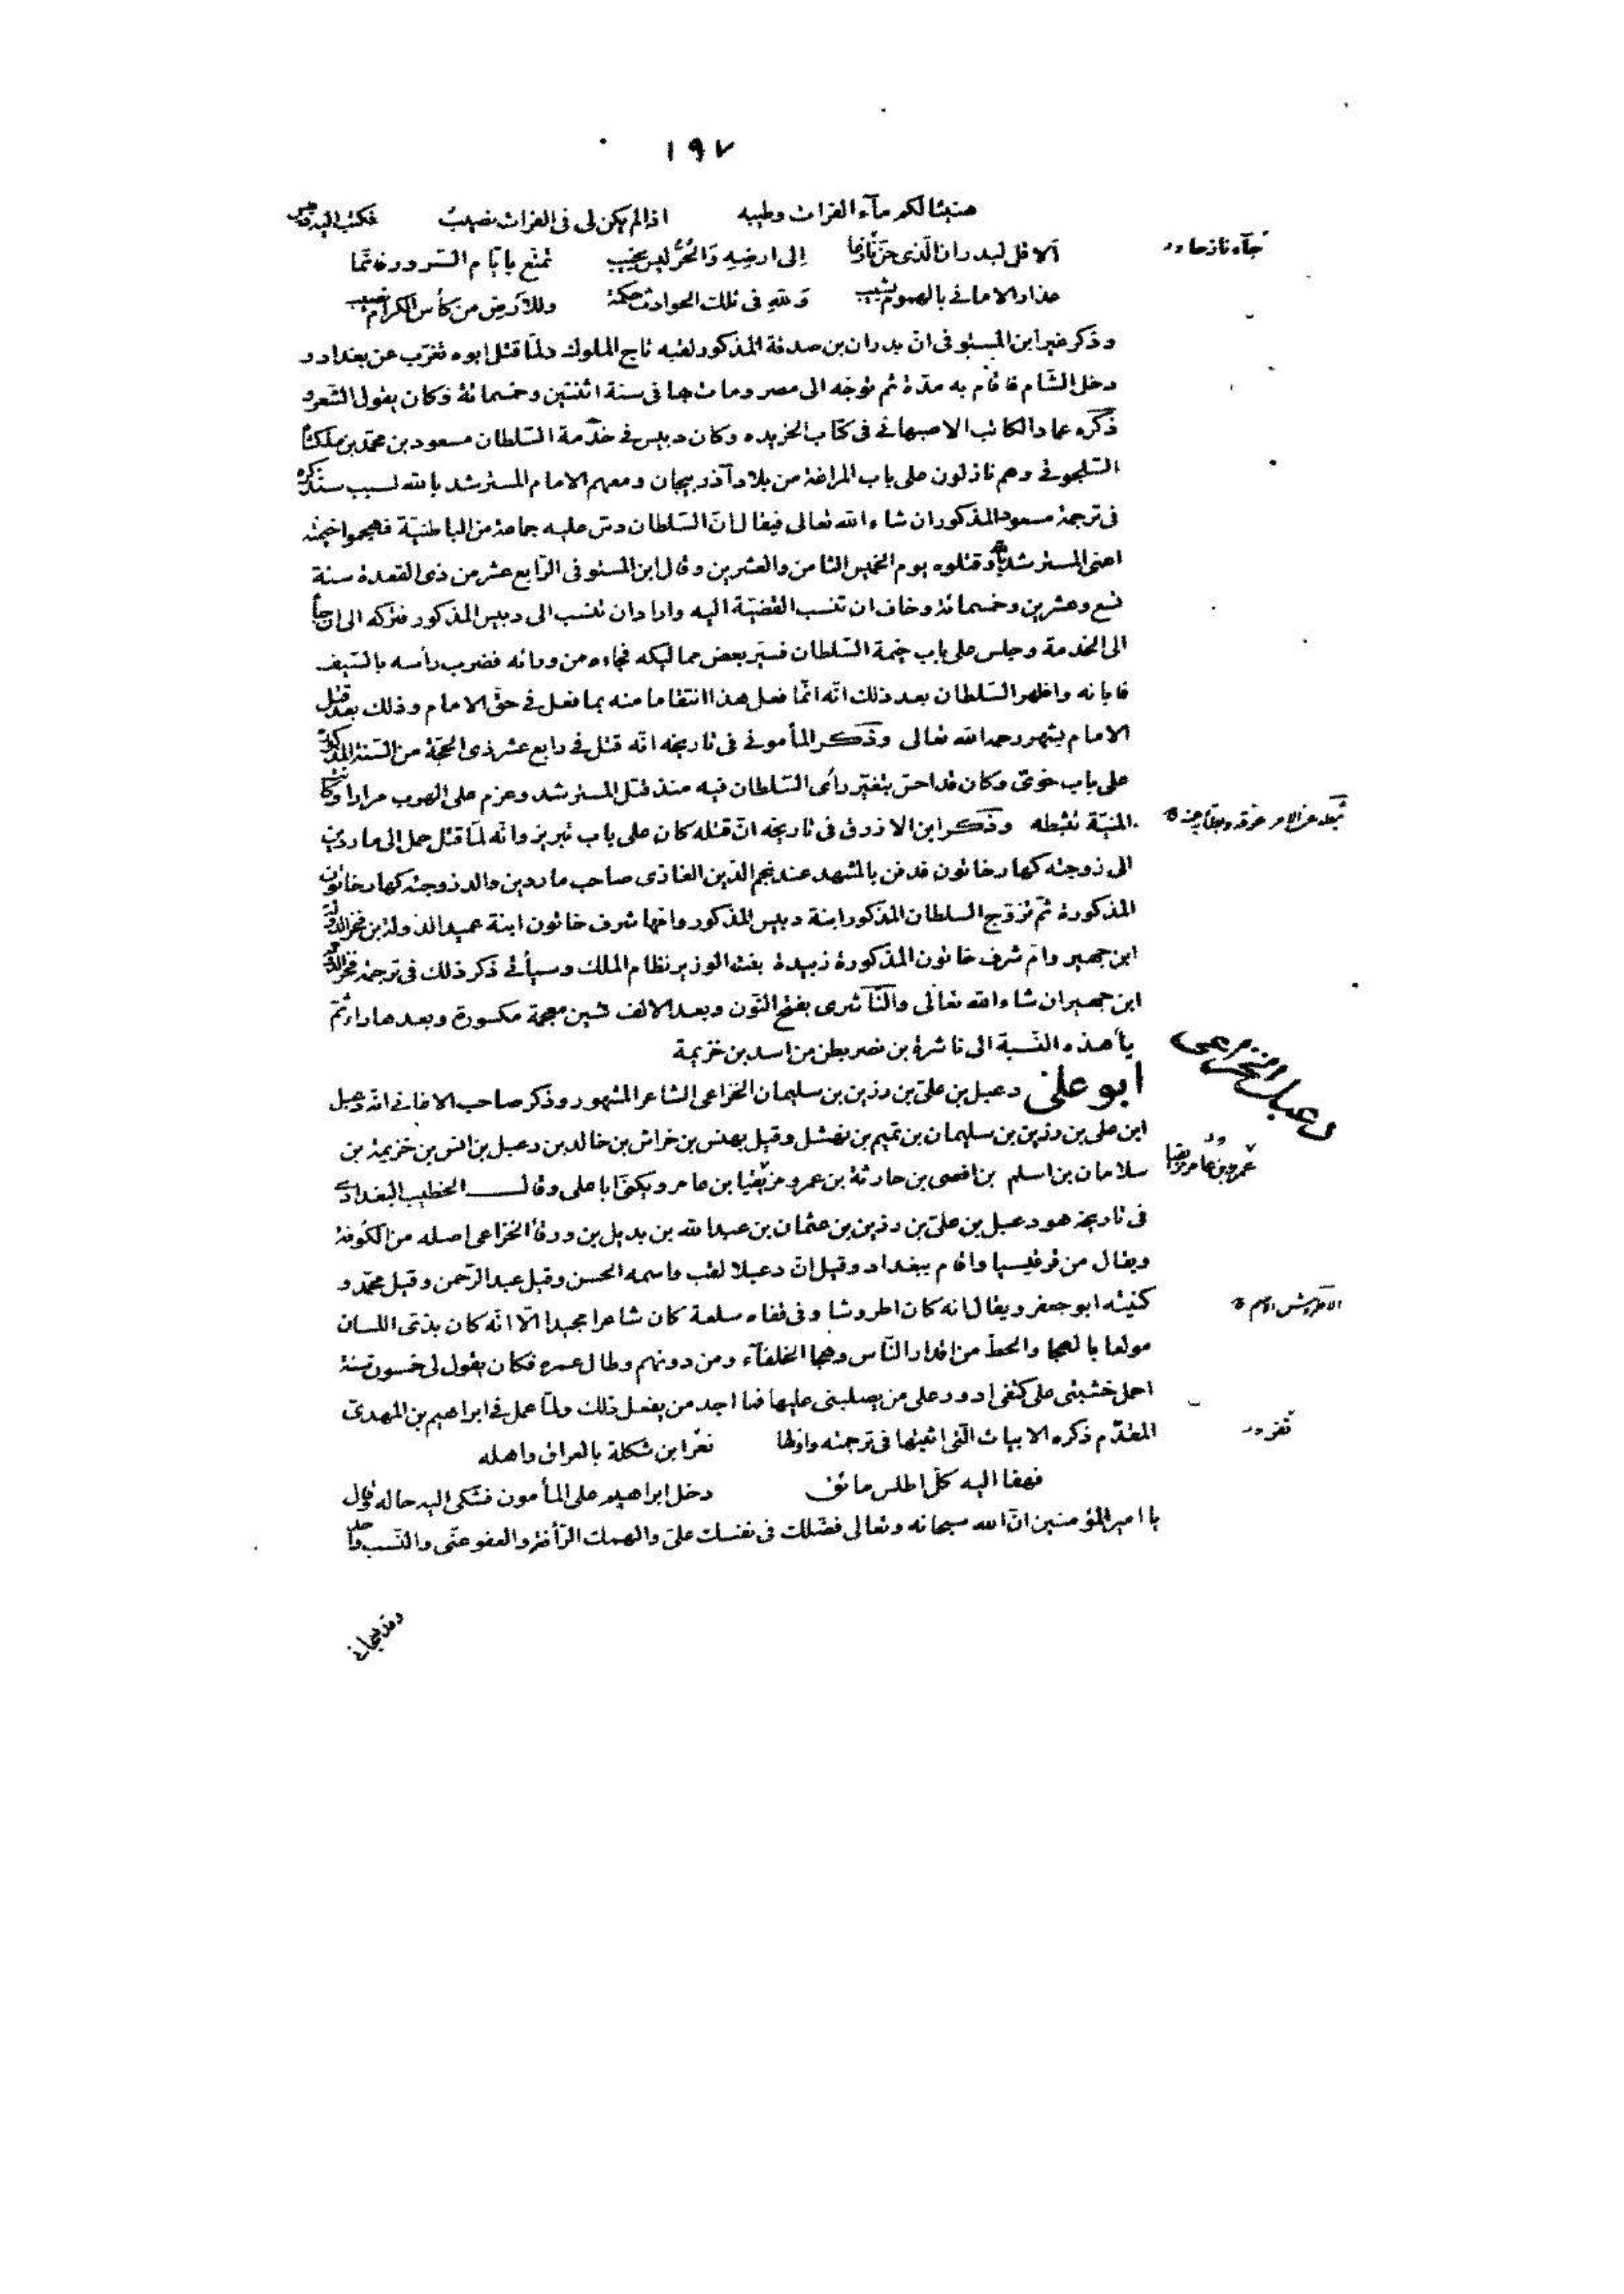 ١٩٧
هنيئا لكم ماء الفرات وطيبه اذا لم يكن لى فى الفرات نصيب فكتب اليه دبيس
الا قل لبدران الذى حن نازعا إلى ارضه والحر ليس يخيب تمتع بايام السرور فانما
عذار الامانى بالهموم يشيب ولله فى تلك الحوادث حكمة وللارض من كأس الكرام نصيب
جآء نازحا
وذكر غير ابن المستوفى ان بدران بن صدقة المذكور لقبه تاج الملوك ولمّا قتل ابوه تغرّب عن بغداد و
دخل الشام فاقام به مدة ثم توجه الى مصر ومات بها فى سنة اثنتين وخمسمائة وكان يقول الشعر و
ذكره عماد الكاتب الاصبهانى فى كتاب الخريده وكان دبيس فى خدمة السلطان مسعود بن محمد بن ملكشا
السلجوقى وهم نازلون على باب المراغة من بلاد آذربيجان ومعهم الامام المسترشد بالله لسبب سنذكره
فى ترجمة مسعود المذكور ان شاء الله تعالى فيقال انّ السلطان دسّ عليه جماعة من الباطنيّة فهجموا خيمته
اعنى المسترشد بالله وقتلوه يوم الخميس الثامن والعشرين وقال ابن المستوفى الرابع عشر من ذى القعدة سنة
تسع وعشرين وخمسمائة وخاف ان تنسب القضيّة اليه واراد ان تنسب الى دبيس المذكور فتركه الى ان جاء
الى الخدمة وجلس على باب خيمة السلطان فسيّر بعض مماليكه فجاءه من ورائه فضرب رأسه بالسّيف
فابانه واظهر السّلطان بعد ذلك انّه انّما فعل هذا انتقاما منه بما فعل فى حقّ الامام وذلك بعد قتل
الامام بشهر رحمه الله تعالى وذكر المأمونى فى تاريخه انّه قتل فى رابع عشر ذى الحجّة من السّنة المذكورة
على باب خوىّ وكان قد احسّ بتغيّر رأى السّلطان فيه منذ قتل المسترشد وعزم على الهروب مرارا وكانت
المنيّة تثبّطه وذكر ابن الازرق فى تاريخه انّ قتله كان على باب تبريز وانّه لمّا قتل حمل الى ماردين
ثبّطه عن الامر عوقه وبطأ به عنه
الى زوجته كهارخاتون فدفن بالمشهد عند نجم الدّين الغازى صاحب ماردين والد زوجته كهارخاتون
المذكورة ثمّ تزوّج السلطان المذكور ابنة دبيس المذكور وامّها شرف خاتون ابنة عميد الدّولة بن فخر الدّولة
ابن جهير وامّ شرف خاتون المذكورة زبيدة بنت الوزير نظام الملك وسيأتى ذكر ذلك فى ترجمة فخر الدّولة
ابن جهير ان شاء الله تعالى والنّاشرى بفتح النّون وبعد الالف شين معجمة مكسورة وبعدها راء ثمّ
يأ هذه النّسبة الى ناشرة بن نصر بطن من اسد بن خزيمة
دعبل الخزاعى
ابو علىّ دعبل بن علىّ بن رزين بن سليمان الخزاعى الشاعر المشهور وذكر صاحب الاغانى انّه دعبل
ابن على بن رزين بن سليمان بن تميم بن نهشل وقيل بهنس بن خراش بن خالد بن دعبل بن انس بن خزيمة بن
سلامان بن اسلم بن افصى بن حارثة بن عمرو مزيقيا بن عامر ويكنّا ابا على وقال الخطيب البغدادى
عمرو بن عامر مزيقيا
فى تاريخه هو دعبل بن علىّ بن رزين بن عثمان بن عبد الله بن بديل بن ورقأ الخزاعى اصله من الكوفة
ويقال من قرقيسيا واقام ببغداد وقيل انّ دعبلا لقب واسمه الحسن وقيل عبد الرّحمن وقيل محمّد و
كنيته ابو جعفر ويقال انه كان اطروشا وفى قفاه سلعة كان شاعرا مجيدا الّا انّه كان بذىّ اللسان
الاطروش الاصم
مولعا بالهجا والحطّ من اقدار النّاس وهجا الخلفآء ومن دونهم وطال عمره فكان يقول لى خمسون سنة
احمل خشبتى على كتفى ادور على من يصلبنى عليها فما اجد من يفعل ذلك ولمّا عمل فى ابراهيم بن المهدىّ
المقدّم ذكره الابيات الّتى اثبتها فى ترجمته واوّلها نعر ابن شكلة بالعراق واهله
نفر
فهفا اليه كلّ اطلس مائق دخل ابراهيم على المأمون فشكى اليه حاله وقال
يا امير المؤمنين انّ الله سبحانه وتعالى فضّلك فى نفسك علىّ والهمك الرّأفة والعفو عنّى والنّسب واحد
وقد هجانى